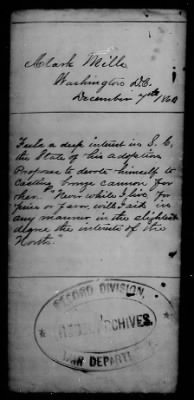 Clark Mills
Washington D.C.
December 7th 1860
Feels a deep interest in S. C,
the State of his adoption
Proposes to devote himself to
Casting bronze cannon for
her. "Never while I live, for
fear or favor, will I aid in
any manner, in the slightest
degree the interests of the
North."
RECORD DIVISION,
REBEL ARCHIVES
WAR DEPARTMENT